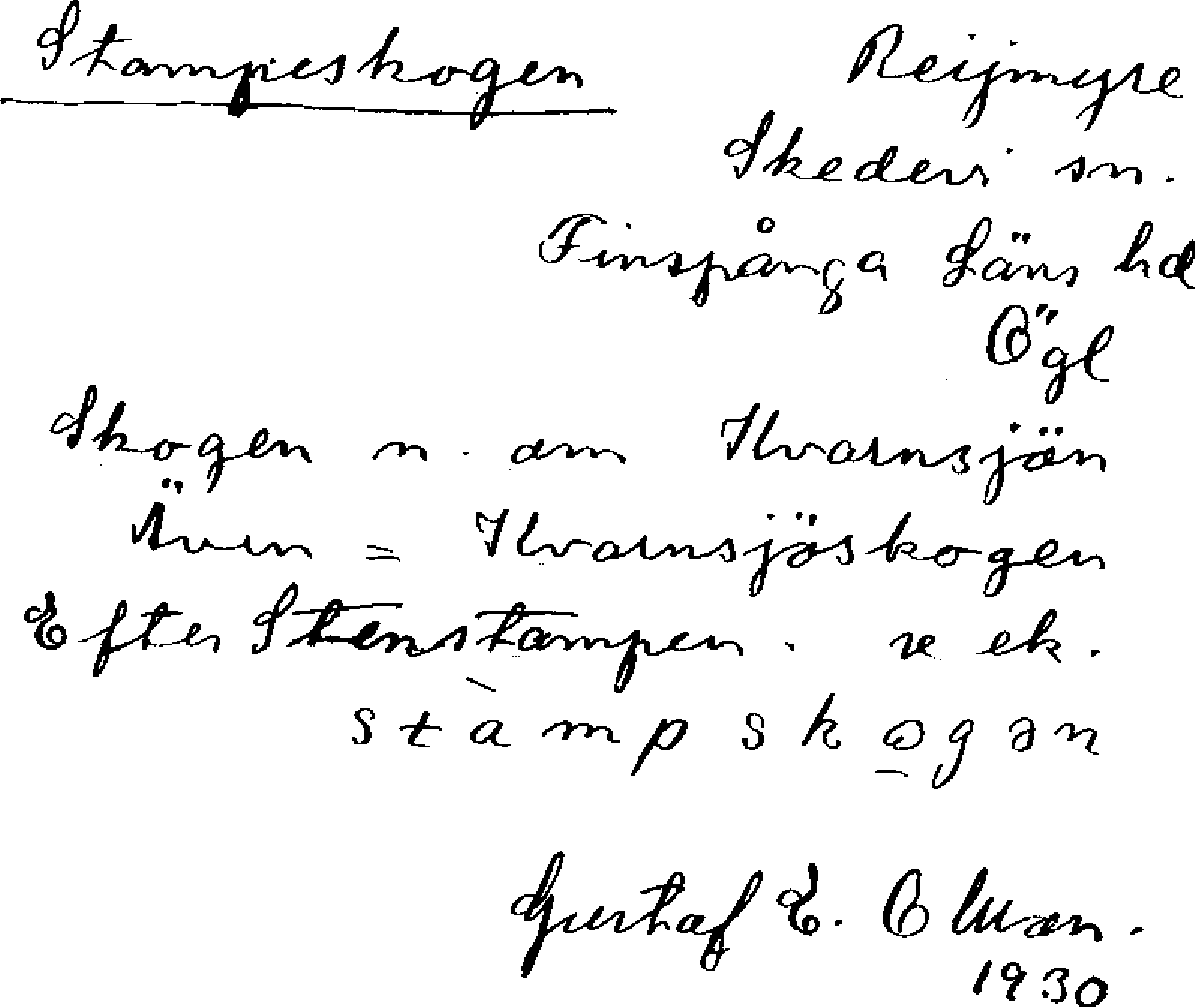 Stampeskogen Reijmyre
Skedevi sn.
Finspånga Läns hd
Ögl
Skogen n. om Kvarnsjön
Även = Kvarnsjöskogen
Efter Stenstampen. se ek.
stàmpskogən
Gustaf E. Olsson.
1930